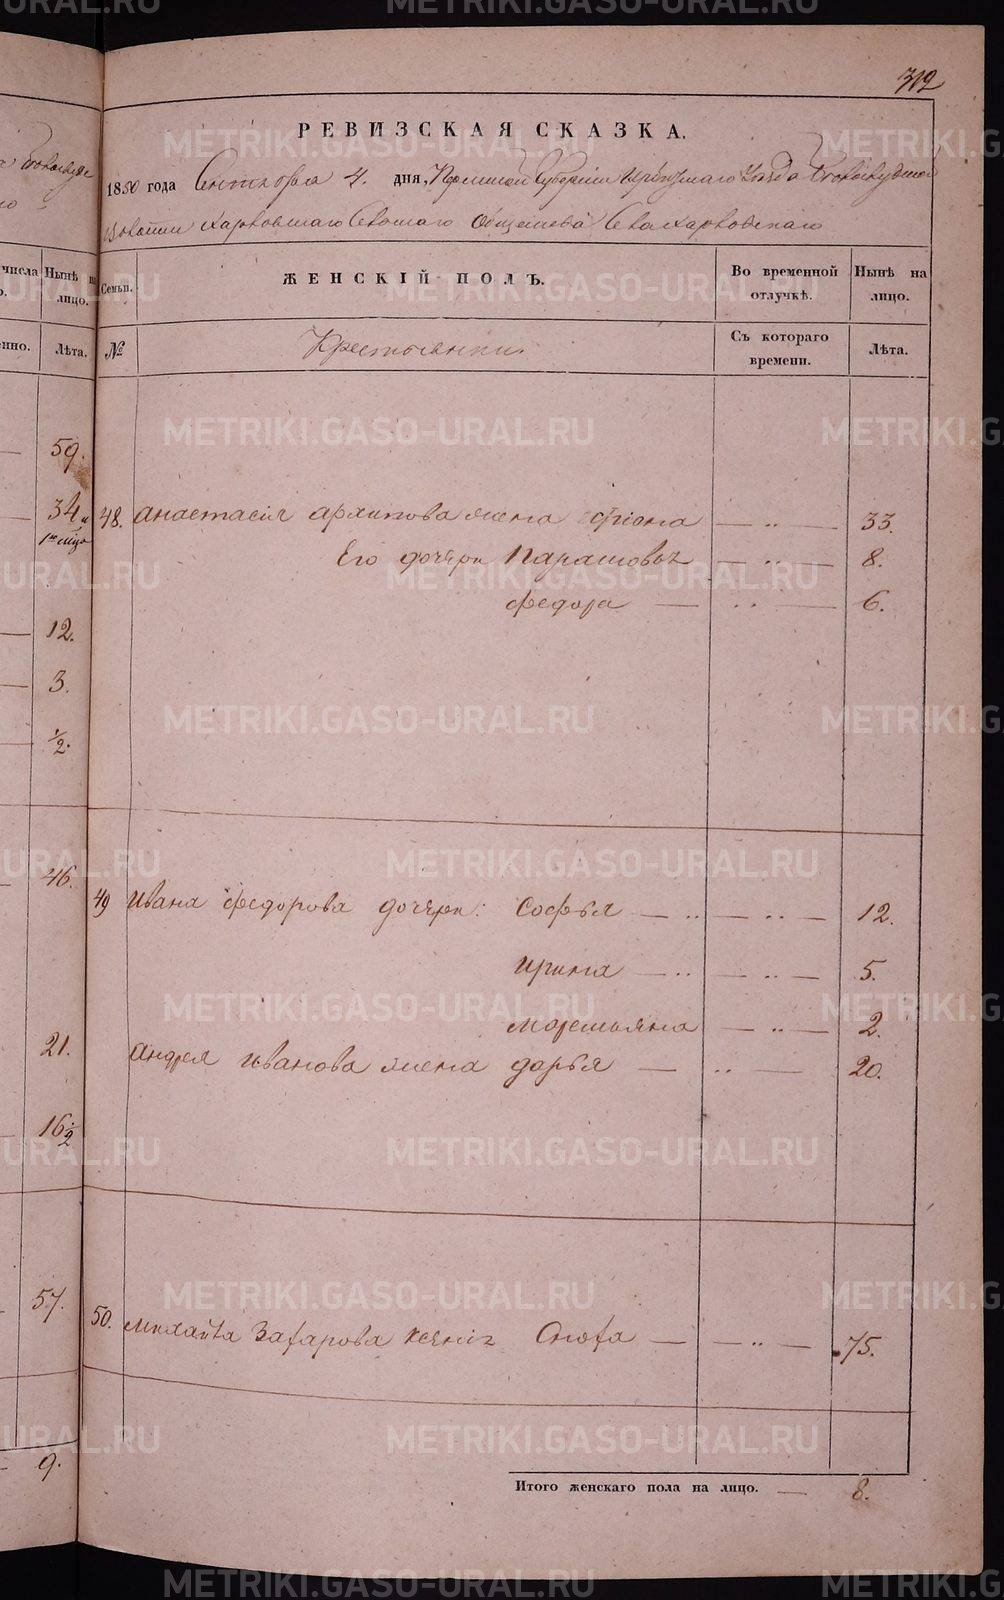 312
РЕВИЗСКАЯ СКАЗКА.
1850 года Сентября 4. дня, Пермской Губернии Ирбитскаго Уезда
Волости Харловскаго Сельскаго Общества Села Харловскаго
числа Нынѣ на лицо.
Семьи.
ЖЕНСКІЙ ПОЛЪ.
Во временной отлучкѣ.
Нынѣ на лицо.
Лѣта.
№
Крестьянки.
Съ котораго времени.
Лѣта.
59.
34 и
12.
3.
1/2.
48. Анастасія Архипова жена — " — 33.
Его дочери — " — 8.
Федора — " — 6.
46.
49 Ивана Федорова дочери: Софья — " — " — 12.
Ирина — " — " — 5.
— " — 2.
21.
Андрея Иванова жена Дарья — " — 20.
16 1/2
57.
50. Михайла Захарова — " — 75.
9.
Итого женскаго пола на лицо. — 8.
METRIKI.GASO-URAL.RU